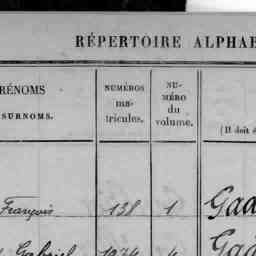 RÉPERTOIRE ALPHAB
RÉNOMS
SURNOMS.
NUMÉROS
ma-
tricules.
NU-
MÉRO
du
volume.
(Il doit ê
François 138 1 Gaa
Gabriel